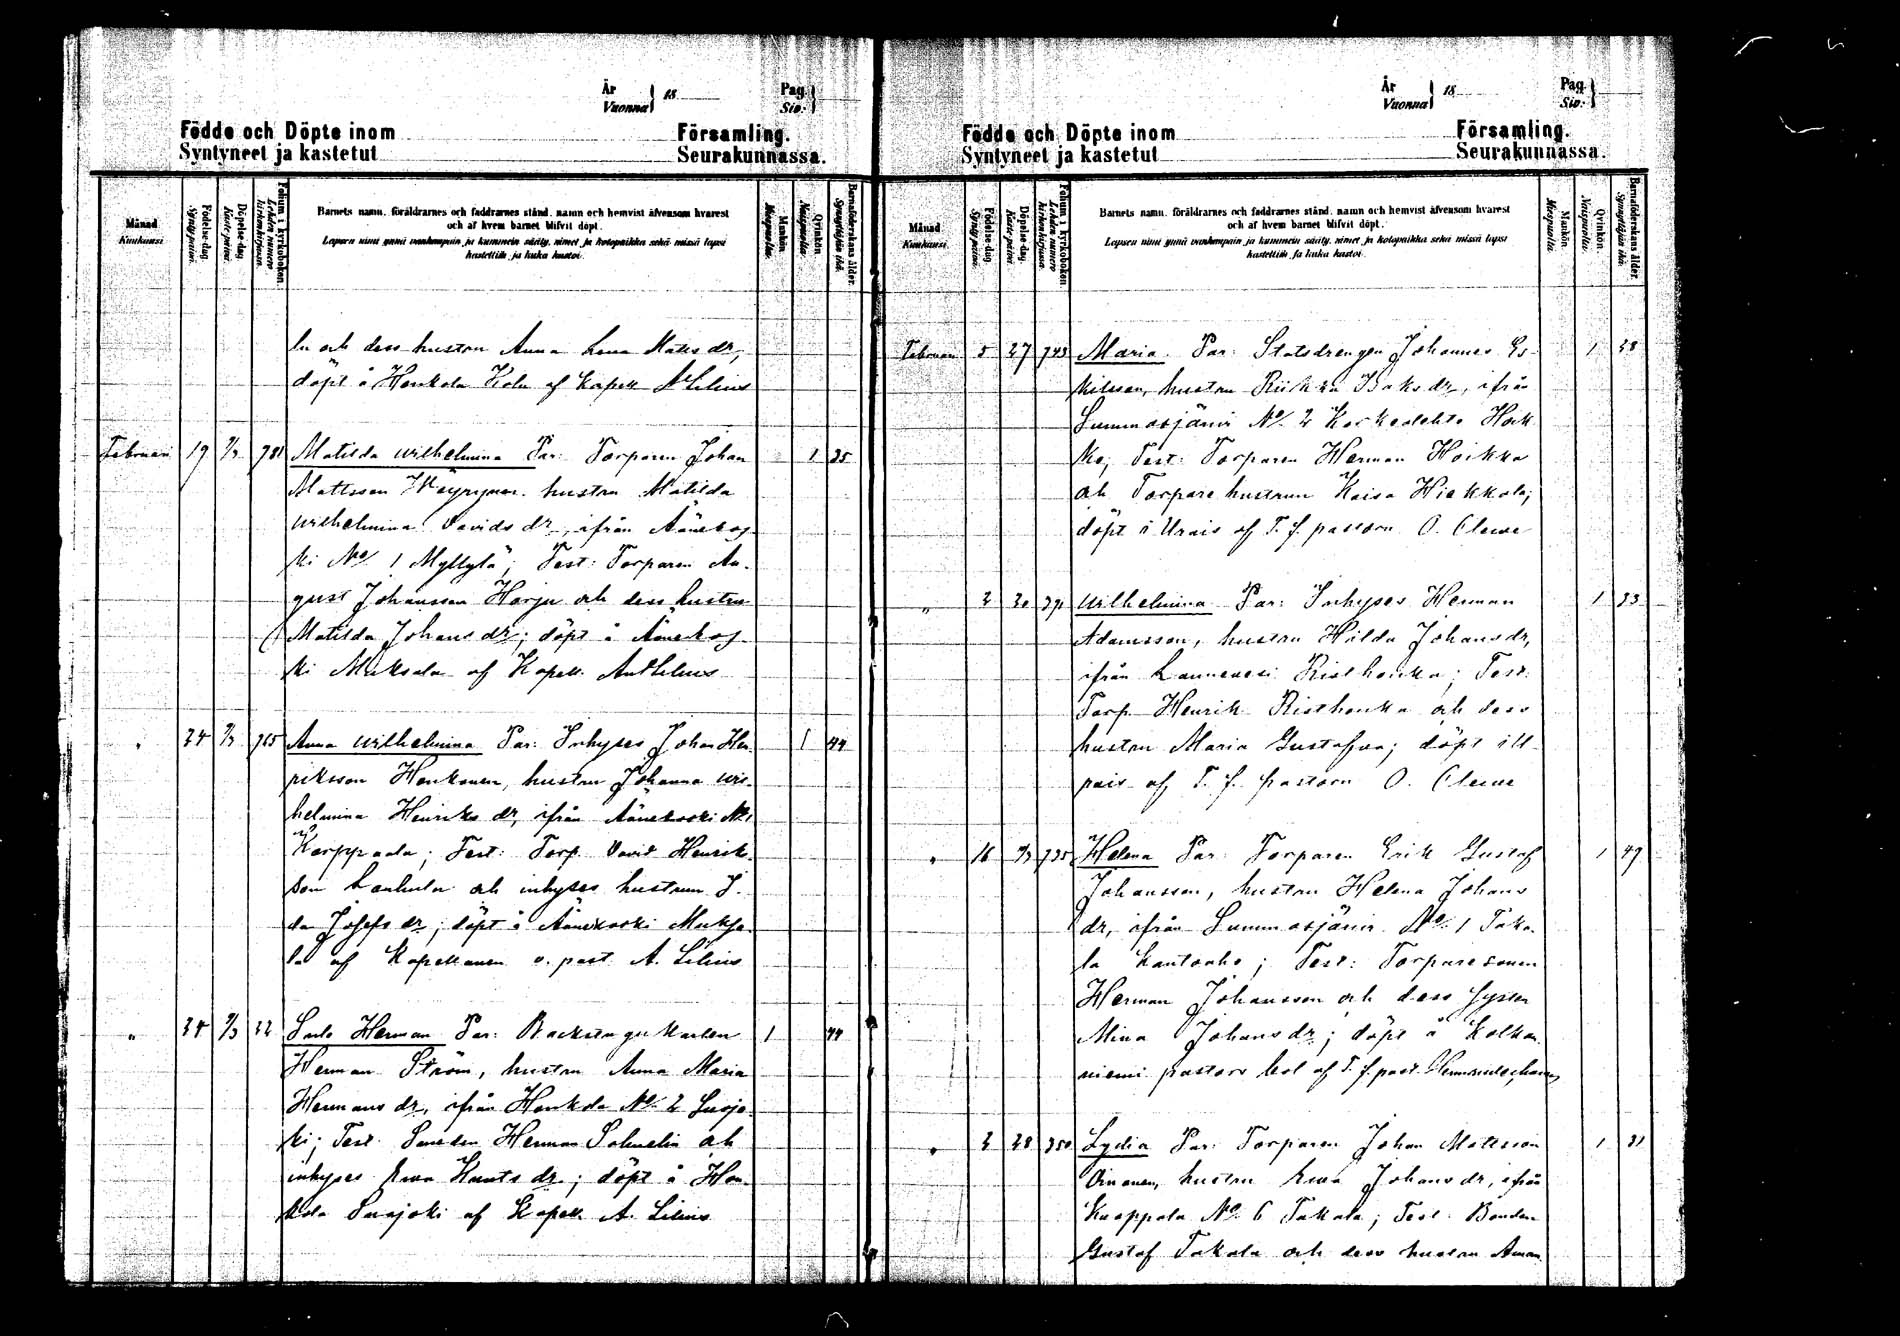 År
Vuonna } 18
Pag.
Siv. }
Födde och Döpte inom Församling.
Syntyneet ja kastetut Seurakunnassa.
Månad
Kuukausi.
Födelse-dag.
Synty-päivä.
Döpelse-dag.
Kaste-päivä.
Folium i kyrkoboken.
Lehden numero kirkonkirjassa.
Barnets namn, föräldrarnes och faddrarnes stånd, namn och hemvist äfvensom hvarest
och af hvem barnet blifvit döpt.
Lapsen nimi ynnä vanhempain ja kummein sääty, nimet ja kotopaikka sekä missä lapsi
kastettiin ja kuka kastoi.
Mankön.
Miespuolia.
Qvinkön.
Naispuolia.
Barnaföderskans ålder.
Synnyttäjän ikä.
la och dess hustru Anna Lena Matts dr,
döpt å Honkola Kola af Kapell. A Lilius
Februari 19 7/3 781 Matilda Wilhelmina Par: Torparen Johan 1 35
Mattsson Wäyrynen, hustru Matilda
Wilhelmina Davids dr, ifrån Äänekos
ki No 1 Myllylä; Test: Torparen Au-
gust Johansson Harju och dess hustru
Matilda Johans dr; döpt å Äänekos
ki Muksala af Kapell. And Lilius
" 24 7/3 765 Anna Wilhelmina Par: Inhyses Johan Hen- 1 44
riksson Honkonen, hustru Johanna Wil-
helmina Henriks dr, ifrån Äänekoski No 1
Karppaala; Test: Torp. David Henrik-
son Louhula och inhyses hustrun I-
da Josefs dr; döpt å Äänekoski Muksa-
la af Kapellanen v. past. A. Lilius
" 24 7/3 22 Sulo Herman Par: Backstugukarlen 1 44
Herman Ström, hustru Anna Maria
Hermans dr, ifrån Honkola No 2 Suojo
ki; Test. Smeden Herman Salmelin och
inhyses Ewa Knuts dr; döpt å Hon-
kola Suojoki af Kapell. A. Lilius
År
Vuonna } 18
Pag.
Siv. }
Födde och Döpte inom Församling.
Syntyneet ja kastetut Seurakunnassa.
Månad
Kuukausi.
Födelse-dag.
Synty-päivä.
Döpelse-dag.
Kaste-päivä.
Folium i kyrkoboken.
Lehden numero kirkonkirjassa.
Barnets namn, föräldrarnes och faddrarnes stånd, namn och hemvist äfvensom hvarest
och af hvem barnet blifvit döpt.
Lapsen nimi ynnä vanhempain ja kummein sääty, nimet ja kotopaikka sekä missä lapsi
kastettiin ja kuka kastoi.
Mankön.
Miespuolia.
Qvinkön.
Naispuolia.
Barnaföderskans ålder.
Synnyttäjän ikä.
Februari 5 27 743 Maria. Par: Statsdrengen Johannes Es- 1 28
kilsson, hustru Riikka Isaks dr, ifrån
Summasjärvi No 2 Korkealehto Hok
ko; Test: Torparen Herman Hoikka
och Torpare hustrun Kaisa Hiekkola;
döpt i Urais af T. f. pastorn O. Cleve
" 2 20 371 Wilhelmina Par: Inhyses Herman 1 33
Adamsson, hustru Hilda Johans dr,
ifrån Lannevesi Risthonka; Test:
Torp. Henrik Risthonka och dess
hustru Maria Gustafva; döpt i U-
rais af T. f. pastorn O. Cleve
" 16 7/3 735 Helena Par: Torparen Erik Gustaf 1 47
Johansson, hustru Helena Johans
dr, ifrån Summasjärvi No 1 Taka-
la Kantoaho; Test: Torparesonen
Herman Johansson och dess syster
Mina Johans dr; döpt å Kolkan-
niemi pastors bol af T. f. past.
" 2 28 350 Lydia Par: Torparen Johan Mattsson 1 31
Oinonen, hustru Ewa Johans dr, ifrån
Kuoppala No 6 Takala; Test: Bonden
Gustaf Takala och dess hustru Aman